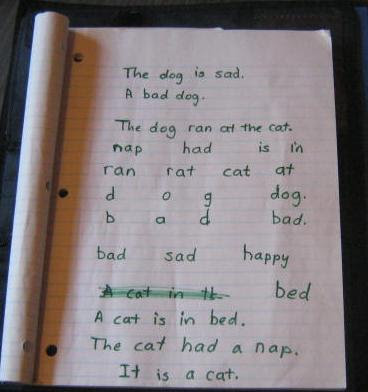 The dog is sad.
A bad dog.
The dog ran at the cat.
nap had is in
ran rat cat at
d o g dog.
b a d bad.
bad sad happy
A cat in th bed
A cat is in bed.
The cat had a nap.
It is a cat.